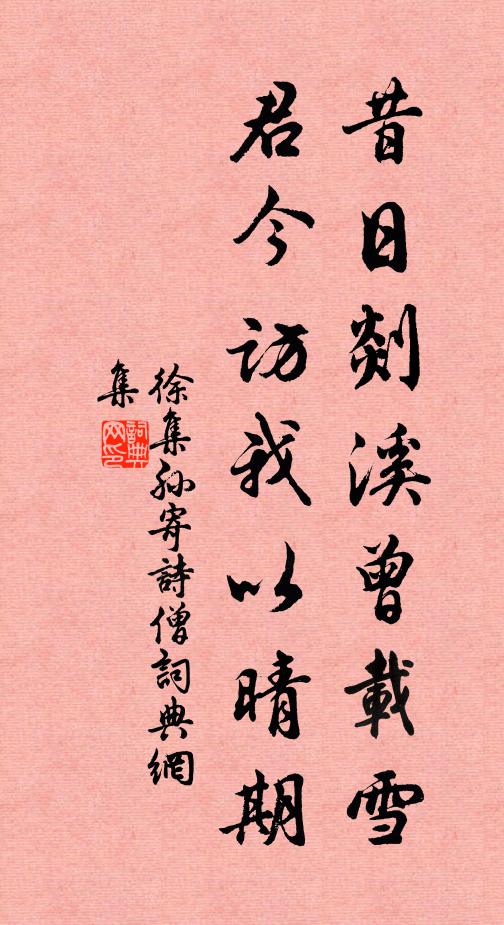 昔日剡溪曾載雪
君今訪我以晴期
徐集孫寄詩僧詞典網
集
詞典
网印